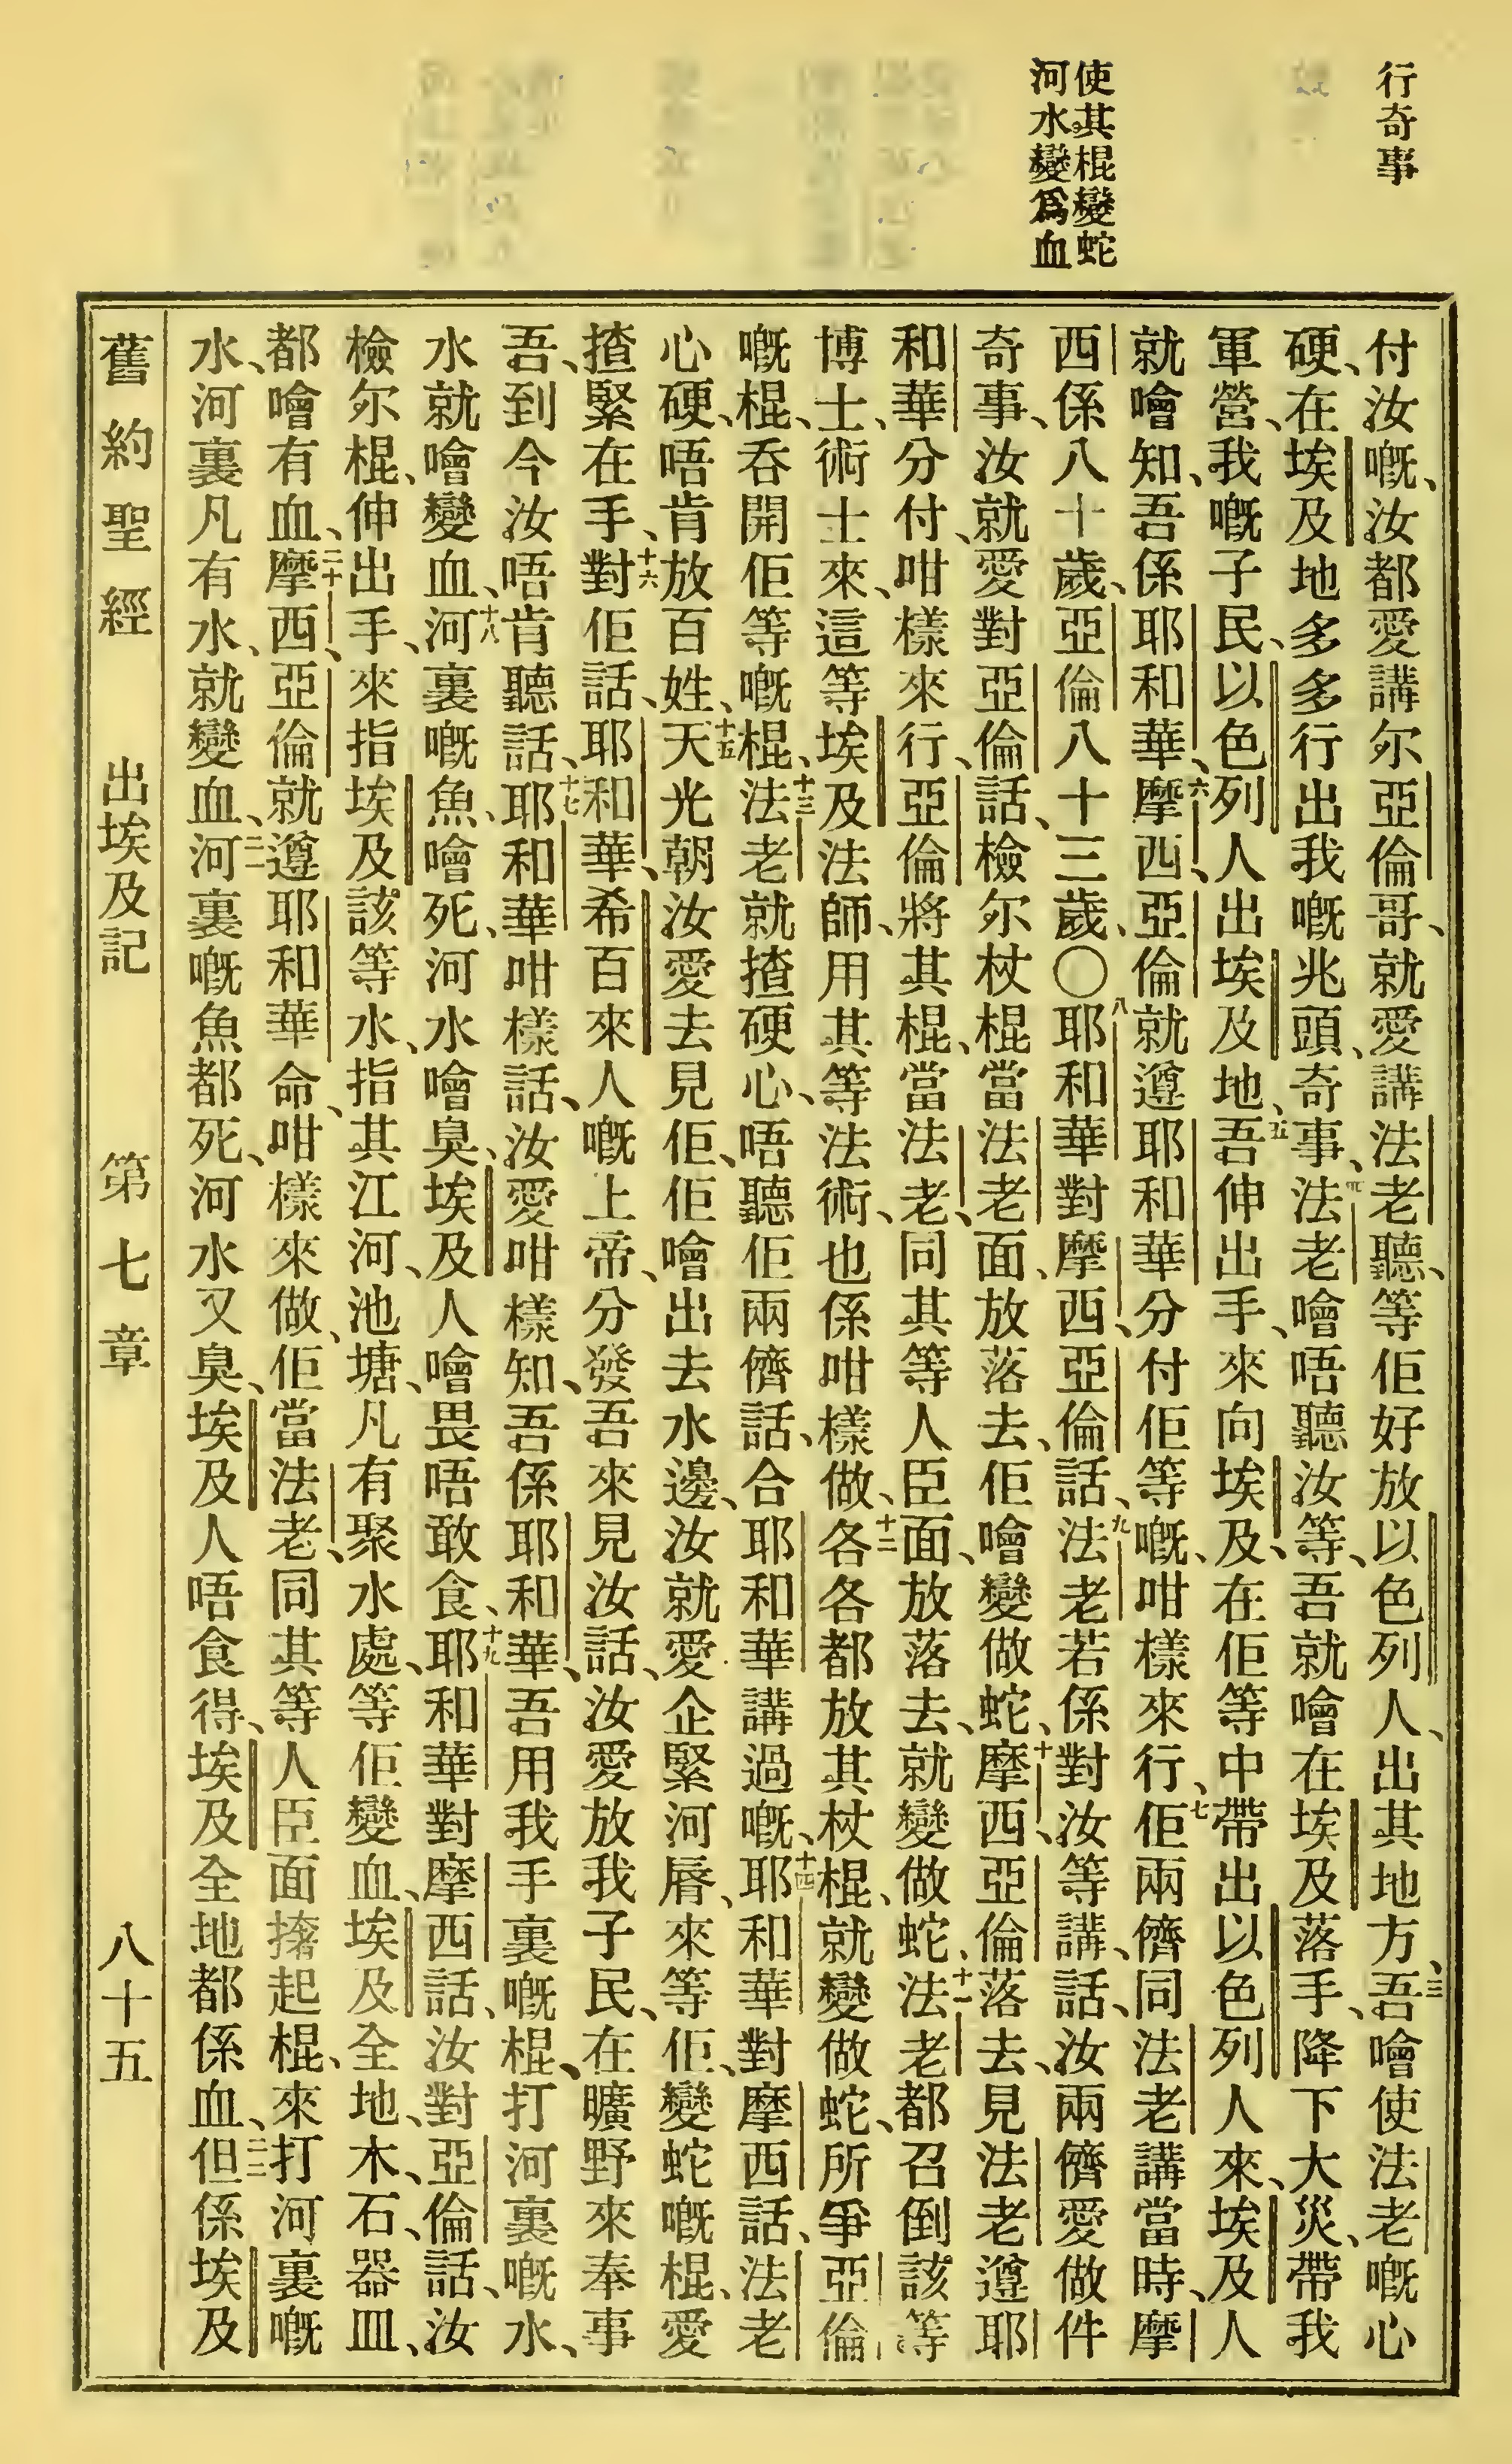 行奇事
使其棍變蛇
河水變爲血
付汝嘅、汝都愛講尔亞倫哥、就愛講法老聽、等佢好放以色列人、出其地方、三吾噲使法老嘅心
硬、在埃及地多多行出我嘅兆頭、奇事、四法老噲唔聽汝等、吾就噲在埃及落手、降下大災、帶我
軍營、我嘅子民、以色列人出埃及地、五吾伸出手、來向埃及、在佢等中帶出以色列人來、埃及人
就噲知、吾係耶和華、六摩西、亞倫就遵耶和華分付佢等嘅、咁樣來行、七佢兩儕同法老講當時、摩
西係八十歲、亞倫八十三歲、〇八耶和華對摩西、亞倫話、九法老若係對汝等講、話、汝兩儕愛做件
奇事、汝就愛對亞倫話、檢尔杖棍當法老面、放落去、佢噲變做蛇、十摩西、亞倫落去、見法老遵耶
和華分付、咁樣來行、亞倫將其棍、當法老、同其等人臣面、放落去、就變做蛇、十一法老都召倒該等
博士、術士來、這等埃及法師、用其等法術、也係咁樣做、十二各各都放其杖棍、就變做蛇、所爭亞倫
嘅棍、吞開佢等嘅棍、十三法老就揸硬心、唔聽佢兩儕話、合耶和華講過嘅、十四耶和華對摩西話、法老
心硬、唔肯放百姓、十五天光朝汝愛去見佢、佢噲出去水邊、汝就愛企緊河唇、來等佢、變蛇嘅棍、愛
揸緊在手、十六對佢話、耶和華、希百來人嘅上帝、分發吾來見汝話、汝愛放我子民、在曠野來奉事
吾、到今汝唔肯聽話、十七耶和華咁樣話、汝愛咁樣知、吾係耶和華、吾用我手裏嘅棍、打河裏嘅水、
水就噲變血、十八河裏嘅魚、噲死、河水噲臭、埃及人噲畏唔敢食、十九耶和華對摩西話、汝對亞倫話、汝
檢尔棍、伸出手、來指埃及該等水、指其江河、池塘、凡有聚水處、等佢變血、埃及全地、木、石、器皿、
都噲有血、二十摩西、亞倫就遵耶和華命、咁樣來做、佢當法老、同其等人臣面撦起棍、來打河裏嘅
水、河裏凡有水、就變血、二一河裏嘅魚都死、河水又臭、埃及人唔食得、埃及全地都係血、二二但係埃及
舊約聖經　出埃及記　第七章　八十五